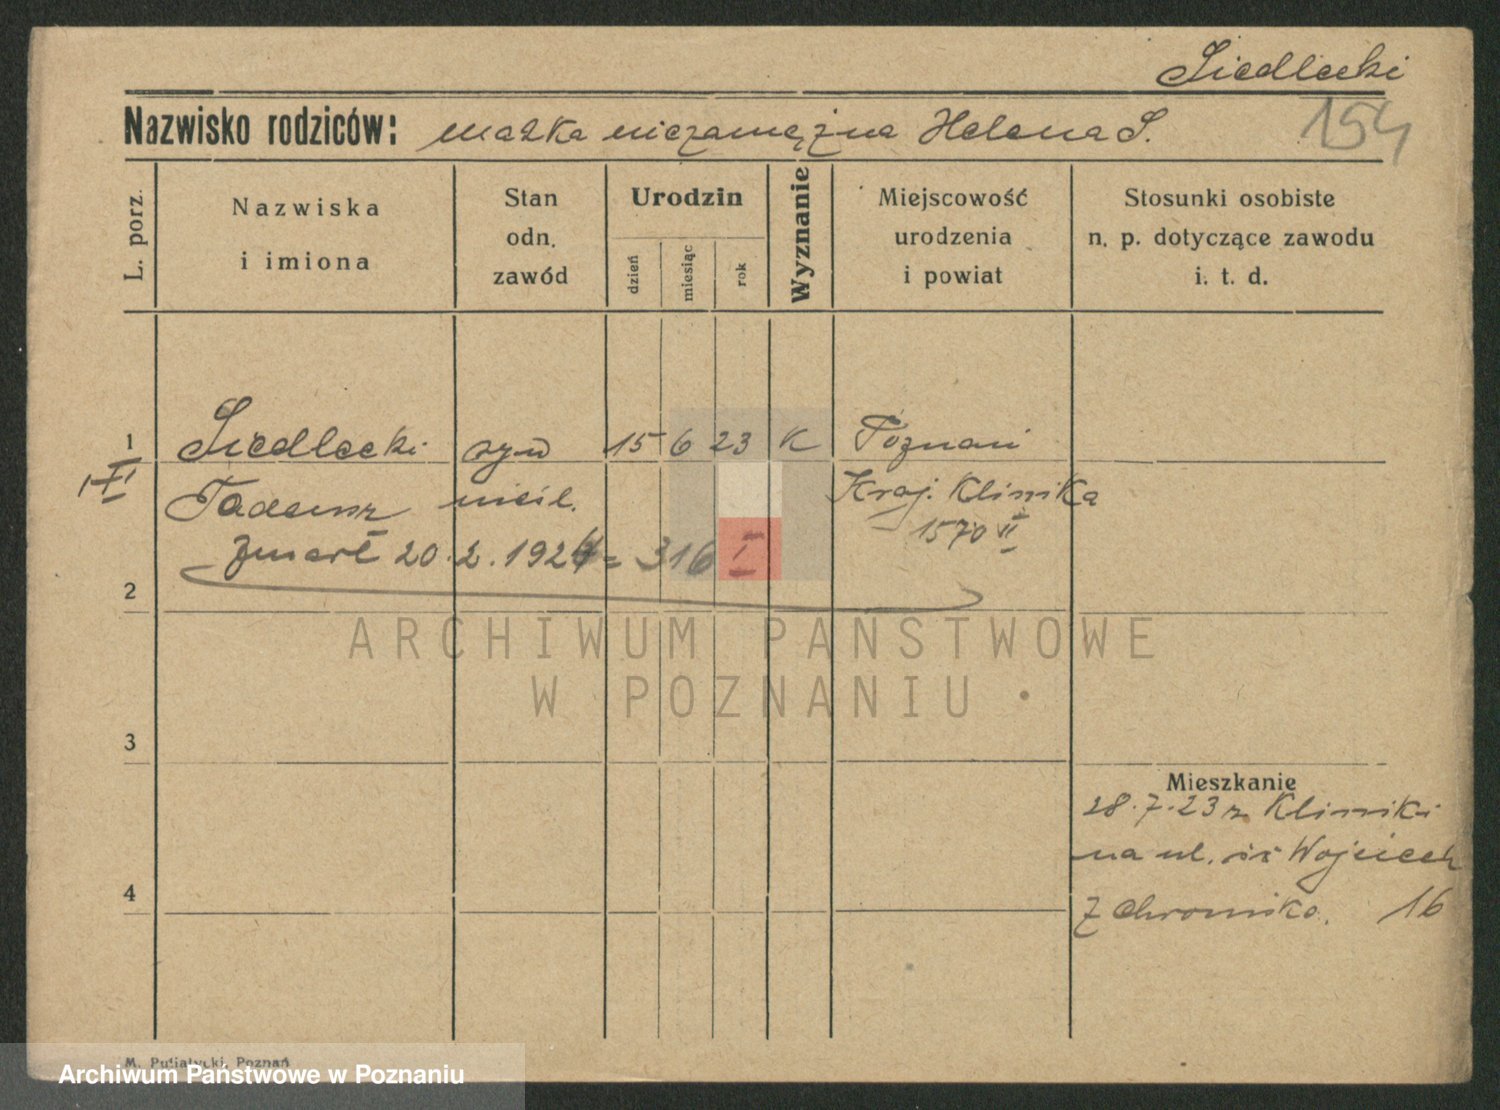 Siedlecki
Nazwisko rodziców: matka niezamężna Helena S.
154
L. porz.
Nazwiska
i imiona
Stan
odn.
zawód
Urodzin
dzień
miesiąc
rok
Wyznanie
Miejscowość
urodzenia
i powiat
Stosunki osobiste
n. p. dotyczące zawodu
i. t. d.
1 Siedlecki syn 15 6 23 K Poznań
Tadeusz nieśl. Kraj. Klinika
1570 II
zmarł 20.2.1924 = 316 I
2
ARCHIWUM PAŃSTWOWE
W POZNANIU
3
Mieszkanie
28.7.23 z Kliniki
na ul. św Wojciech
4
16
M. Putiatycki, Poznań
Archiwum Państwowe w Poznaniu